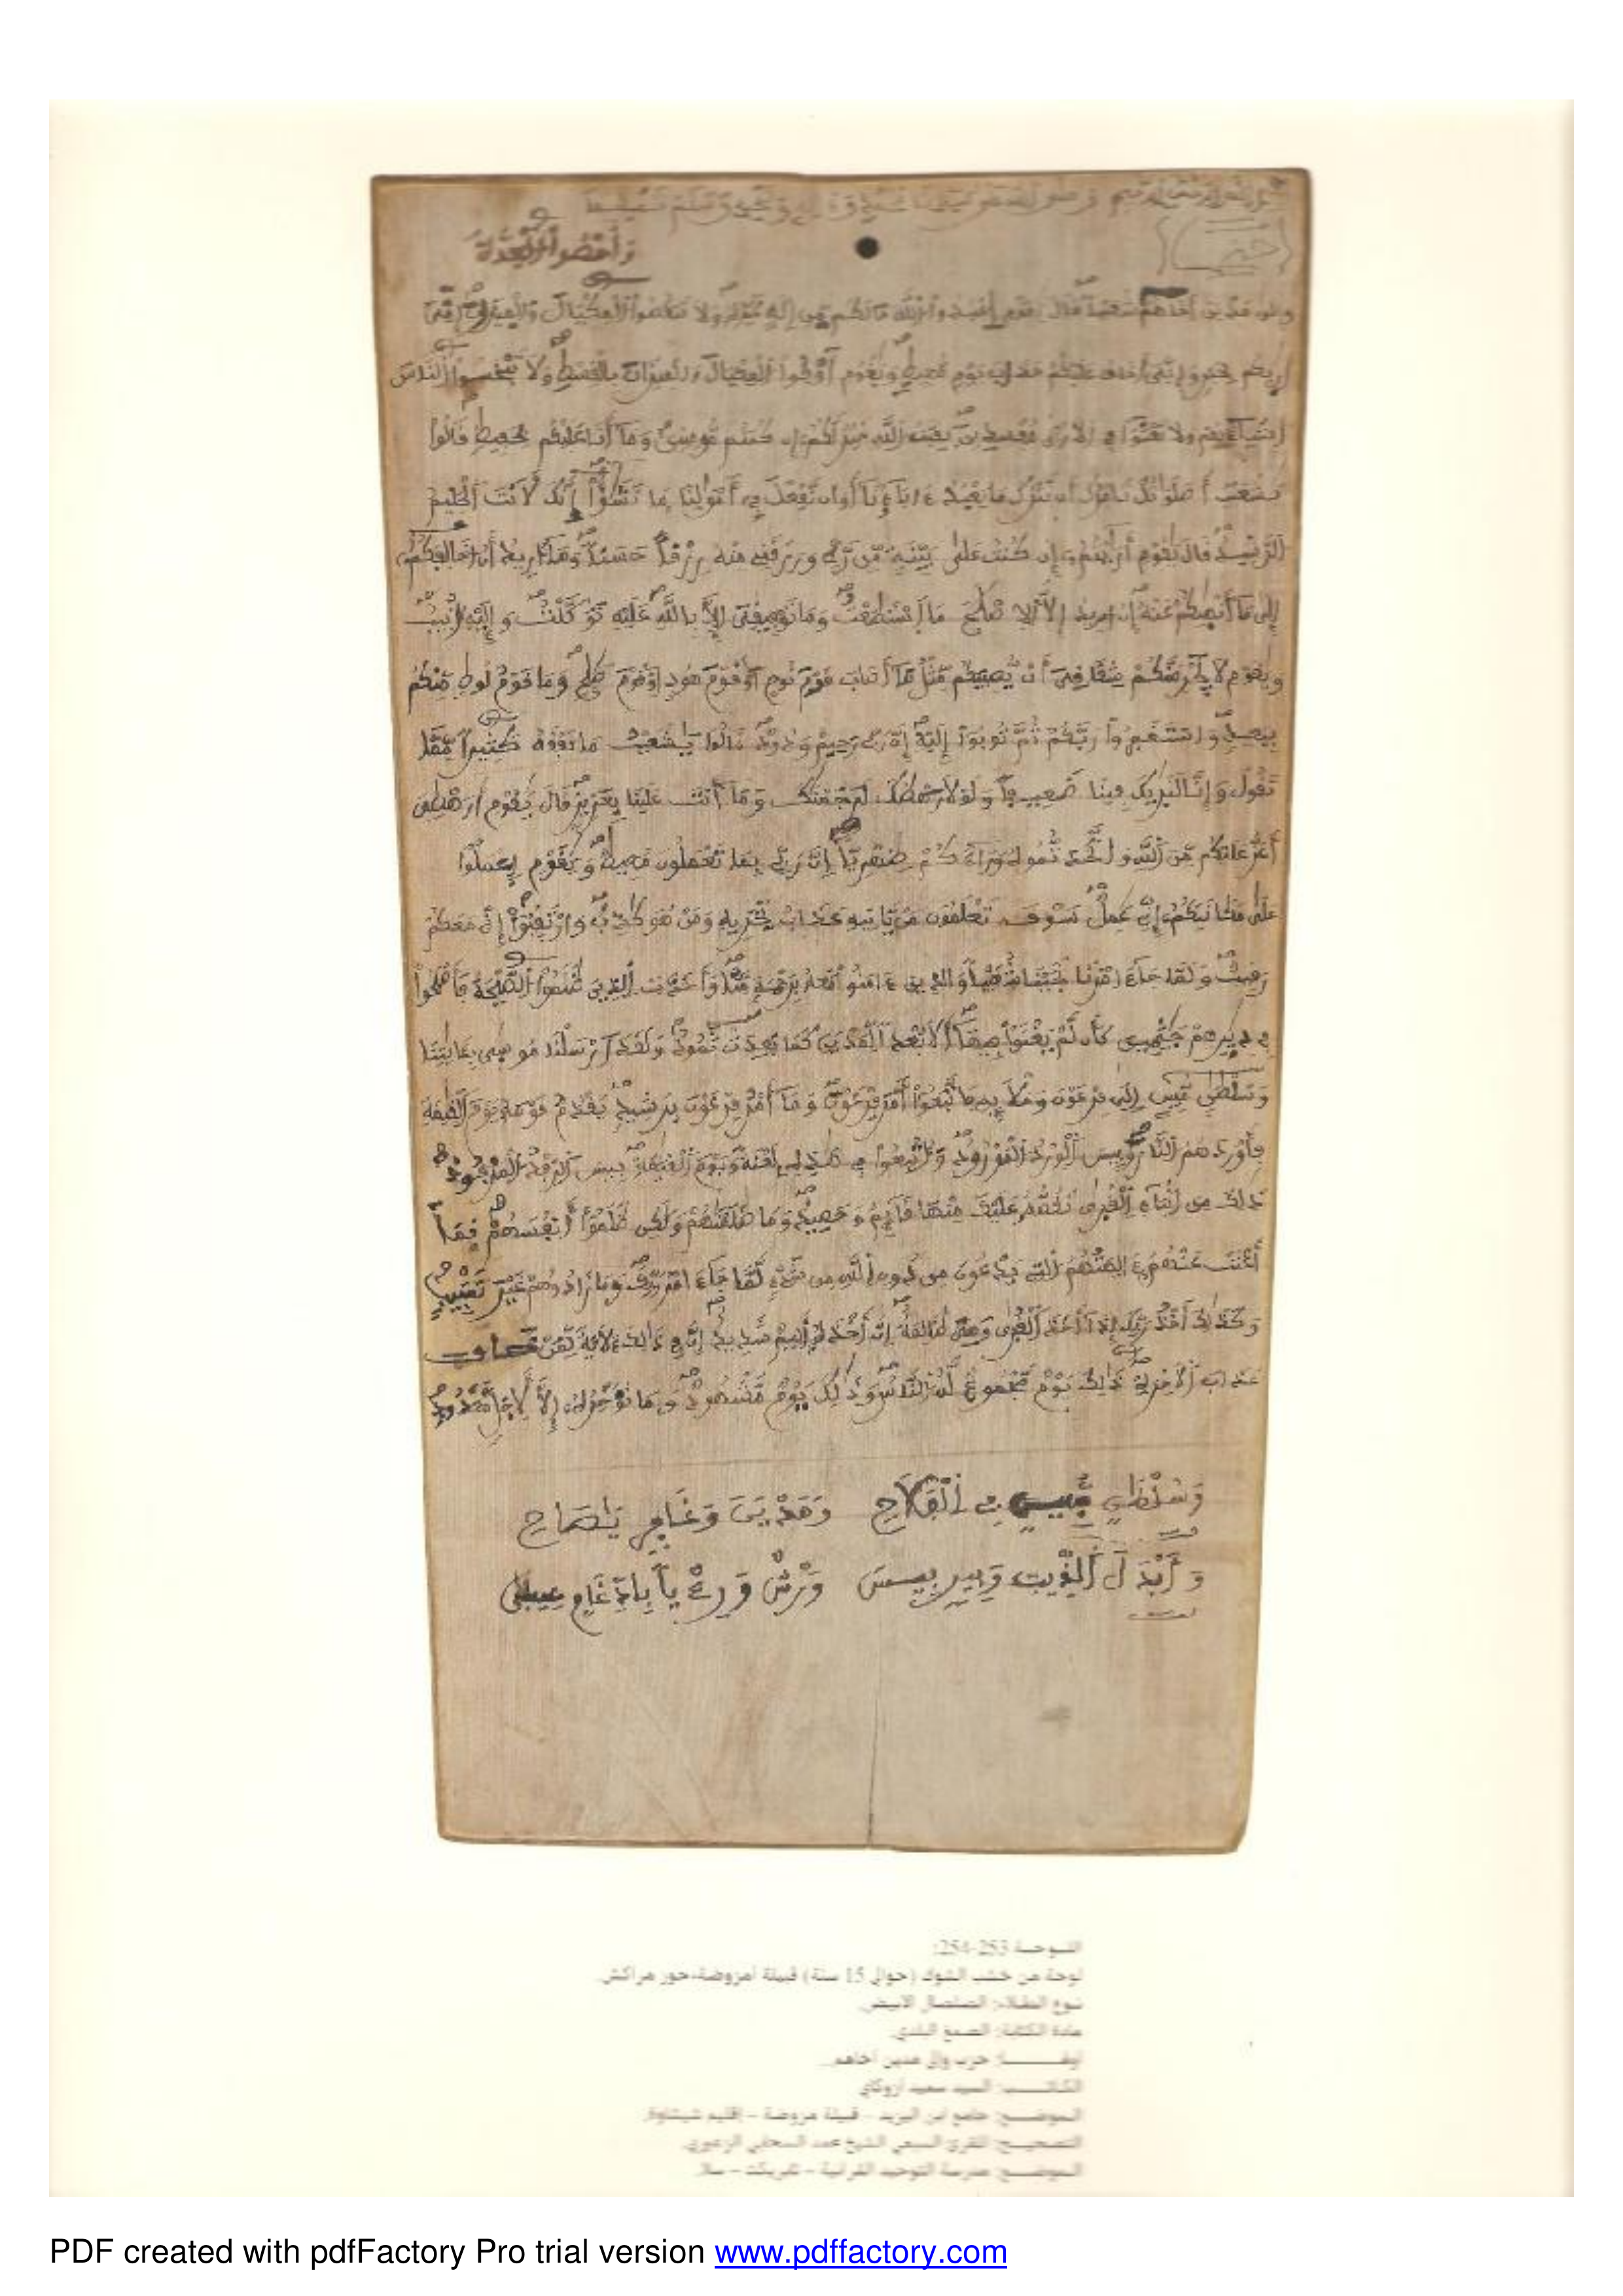 وأحصوا العدة
حزب
وإلى مدين أخاهم شعيبا قال يقوم اعبدوا الله مالكم من إله غيره ولا تنقصوا المكيال والميزان إني
أريكم بخير وإني أخاف عليكم عذاب يوم محيط ويقوم أوفوا المكيال والميزان بالقسط ولا تبخسوا الناس
أشياءهم ولا تعثوا في الارض مفسدين بقيت الله خير لكم إن كنتم مومنين وما أنا عليكم بحفيظ قالوا
يشعيب أصلواتك تامرك أن نترك ما يعبد ءاباؤنا أو ان نفعل في أموالنا ما نشؤا إنك لأنت الحليم
الرشيد قال يقوم أرايتم إن كنت على بينة من ربي ورزقني منه رزقا حسنا وما أريد أن اخالفكم
إلى ما أنهيكم عنه إن اريد إلا الاصلح ما استطعت وما توفيقي إلا بالله عليه توكلت وإليه أنيب
ويقوم لا يجرمنكم شقاقي أن يصيبكم مثل ما أصاب قوم نوح او قوم هود او قوم صلح وما قوم لوط منكم
ببعيد واستغفروا ربكم ثم توبوا إليه إن ربي رحيم ودود قالوا يشعيب ما نفقه كثيرا مما
تقول وإنا لنريك فينا ضعيفا ولولا رهطك لرجمنك وما أنت علينا بعزيز قال يقوم أرهطي
أعز عليكم من الله واتخذتموه وراءكم ظهريا إن ربي بما تعملون محيط ويقوم اعملوا
على مكانتكم إني عمل سوف تعلمون من ياتيه عذاب يخزيه ومن هو كذب وارتقبوا إني معكم
رقيب ولما جاء امرنا نجينا شعيبا والذين ءامنوا معه برحمة منا وأخذت الذين ظلموا الصيحة فأصبحوا
في ديرهم جثمين كأن لم يغنوا فيها ألا بعدا لمدين كما بعدت ثمود ولقد ارسلنا موسى بئايتنا
وسلطن مبين إلى فرعون وملإيه فاتبعوا أمر فرعون وما أمر فرعون برشيد يقدم قومه يوم القيمة
فأوردهم النار وبيس الورد المورود وأتبعوا في هذه لعنة ويوم القيمة بيس الرفد المرفود
ذلك من انباء القرى نقصه عليك منها قائم وحصيد وما ظلمنهم ولكن ظلموا أنفسهم فما
أغنت عنهم ءالهتهم التي يدعون من دون الله من شيء لما جاء امر ربك وما زادوهم غير تتبيب
وكذلك أخذ ربك إذا أخذ القرى وهي ظالمة إن أخذه أليم شديد إن في ذلك لأية لمن خاف
عذاب الاخرة ذلك يوم مجموع له الناس وذلك يوم مشهود وما نؤخره إلا لأجل معدود
وسلطن مبين في الفلاح ومدين وغافر ياصاح
وأبدل الذيب وبير بيس ورش وريا بإدغام عيسى
اللوحة 253-254:
لوحة من خشب الشوك (حوالي 15 سنة) قبيلة امزوضة-حوز مراكش.
نوع الطلاء: الصلصال الابيض.
مادة الكتابة: الصمغ البلدي.
حزب وإلى مدين أخاهم.
الكاتب: السيد سعيد أزوكاي
الموضع: جامع ابن اليزيد - قبيلة مزوضة - إقليم شيشاوة.
التصحيح: المقرئ السبعي الشيخ محمد السحابي الزعيري.
الموضع: مدرسة التوحيد القرآنية - تابريكت - سلا.
PDF created with pdfFactory Pro trial version www.pdffactory.com